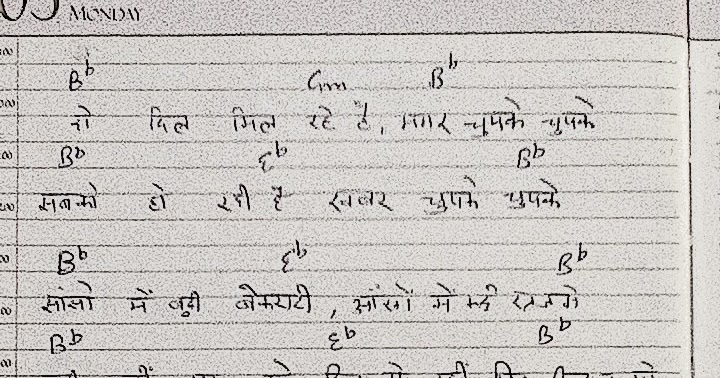 05 MONDAY
B♭ Gm B♭
दो दिल मिल रहे हैं, मगर चुपके चुपके
B♭ E♭ B♭
सबको हो रही है खबर चुपके चुपके
B♭ E♭ B♭
सांसो में बड़ी बेकरारी, आंखों में कई रतजगे
B♭ E♭ B♭